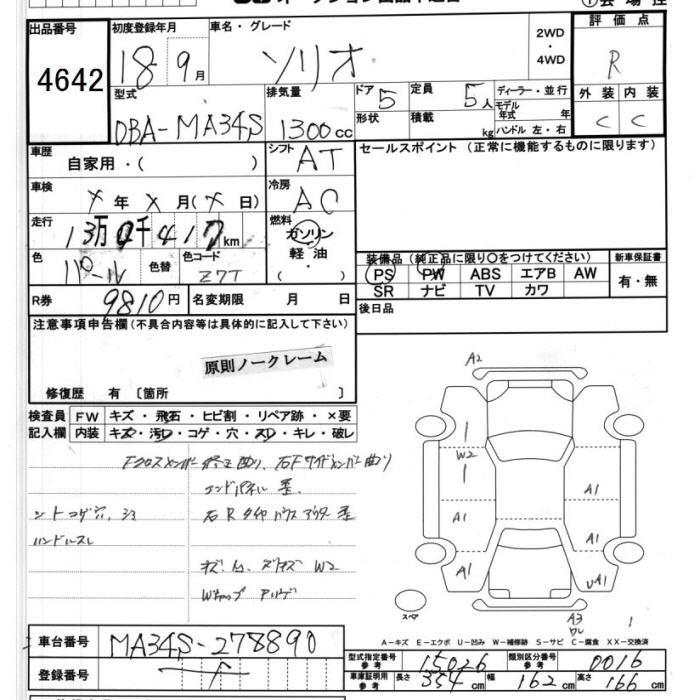 出品番号
4642
初度登録年月
18 9月
車名・グレード
ソリオ
2WD
・
4WD
評価点
R
外装 内装
C C
型式
DBA-MA34S
排気量
1300cc
ドア 5
形状
定員 5人
積載 kg
ディーラー・並行
モデル
年式 年
ハンドル 左・右
車歴
自家用・( )
シフト AT
セールスポイント (正常に機能するものに限ります)
車検
年 月( 日)
冷房 AC
走行
13万 千 417km
燃料
ガソリン
軽油
・( )
色
パール
色替
色コード
Z7T
装備品 (純正品に限り○をつけてください)
PS PW ABS エアB AW
SR ナビ TV カワ
新車保証書
有・無
R券 9810円
名変期限 月 日
後日品
注意事項申告欄(不具合内容等は具体的に記入して下さい)
原則ノークレーム
修復歴 有 〔箇所 〕
検査員
記入欄
FW キズ・飛石・ヒビ割・リペア跡・×要
内装 キズ・汚レ・コゲ・穴・スレ・キレ・破レ
Fクロスメンバー 修正 曲り、右Fサイドメンバー曲り
エンドパネル 歪
シートコゲ穴、シミ
右Rタイヤハウスアウター 歪
ハンドルスレ
W2
A2
W2
A1
A1
A1
A1
UA1
A3
スペア
1
A-キズ E-エクボ U-凹み W-補修跡 S-サビ C-腐食 XX-交換済
車台番号
MA34S-278890
登録番号
型式指定番号
参考
15026
類別区分番号
参考
0016
車庫証明用
参考
長さ 354cm 幅 162cm 高さ 166cm